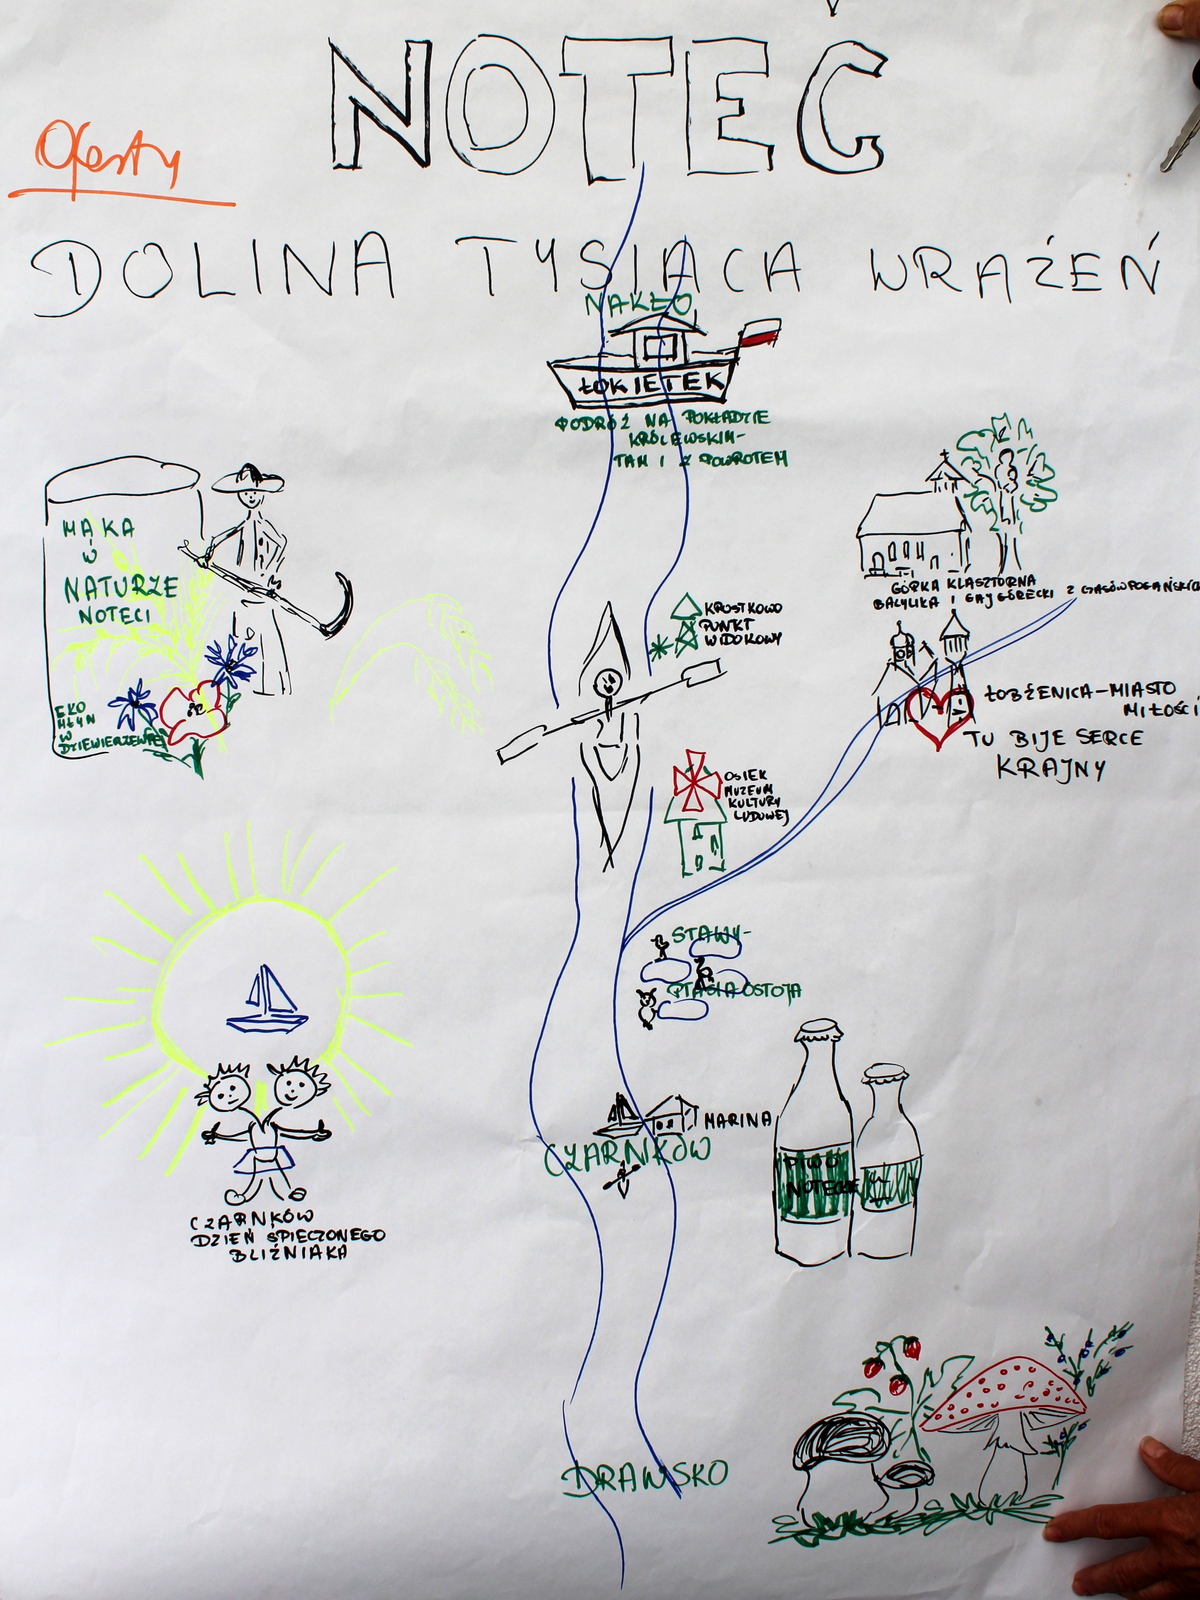 NOTEĆ
Oferty
DOLINA TYSIĄCA WRAŻEŃ
NAKŁO
ŁOKIETEK
PODRÓŻ NA POKŁADZIE
KRÓLEWSKIM-
TAM I Z POWROTEM
MĄKA
W
NATURZE
NOTECI
EKO
MŁYN
W
DZIEWIERZEWIE
GÓRKA KLASZTORNA
BAZYLIKA I GAJ GÓRECKI Z CZASÓW POGAŃSKICH
KROSTKOWO
PUNKT
WIDOKOWY
ŁOBŻENICA-MIASTO
MIŁOŚCI
TU BIJE SERCE
KRAJNY
OSIEK
MUZEUM
KULTURY
LUDOWEJ
STAWY-
PTASIA OSTOJA
MARINA
CZARNKÓW
PIWO
NOTECKIE
CZARNKÓW
DZIEŃ SPIECZONEGO
BLIŹNIAKA
DRAWSKO